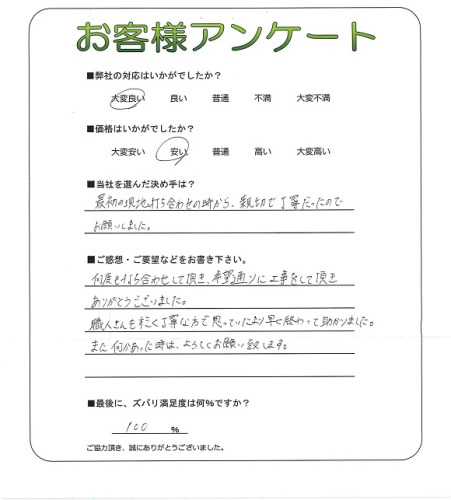 お客様アンケート
■弊社の対応はいかがでしたか？
大変良い 良い 普通 不満 大変不満
■価格はいかがでしたか？
大変安い 安い 普通 高い 大変高い
■当社を選んだ決め手は？
最初の現地打ち合わせの時から、親切で丁寧だったので
お願いしました。
■ご感想・ご要望などをお書き下さい。
何度も打ち合わせして頂き、希望通りに工事をして頂き
ありがとうございました。
職人さんもすごく丁寧な方で思っていたより早く終わって助かりました。
また何かあった時は、よろしくお願い致します。
■最後に、ズバリ満足度は何％ですか？
100 ％
ご協力頂き、誠にありがとうございました。